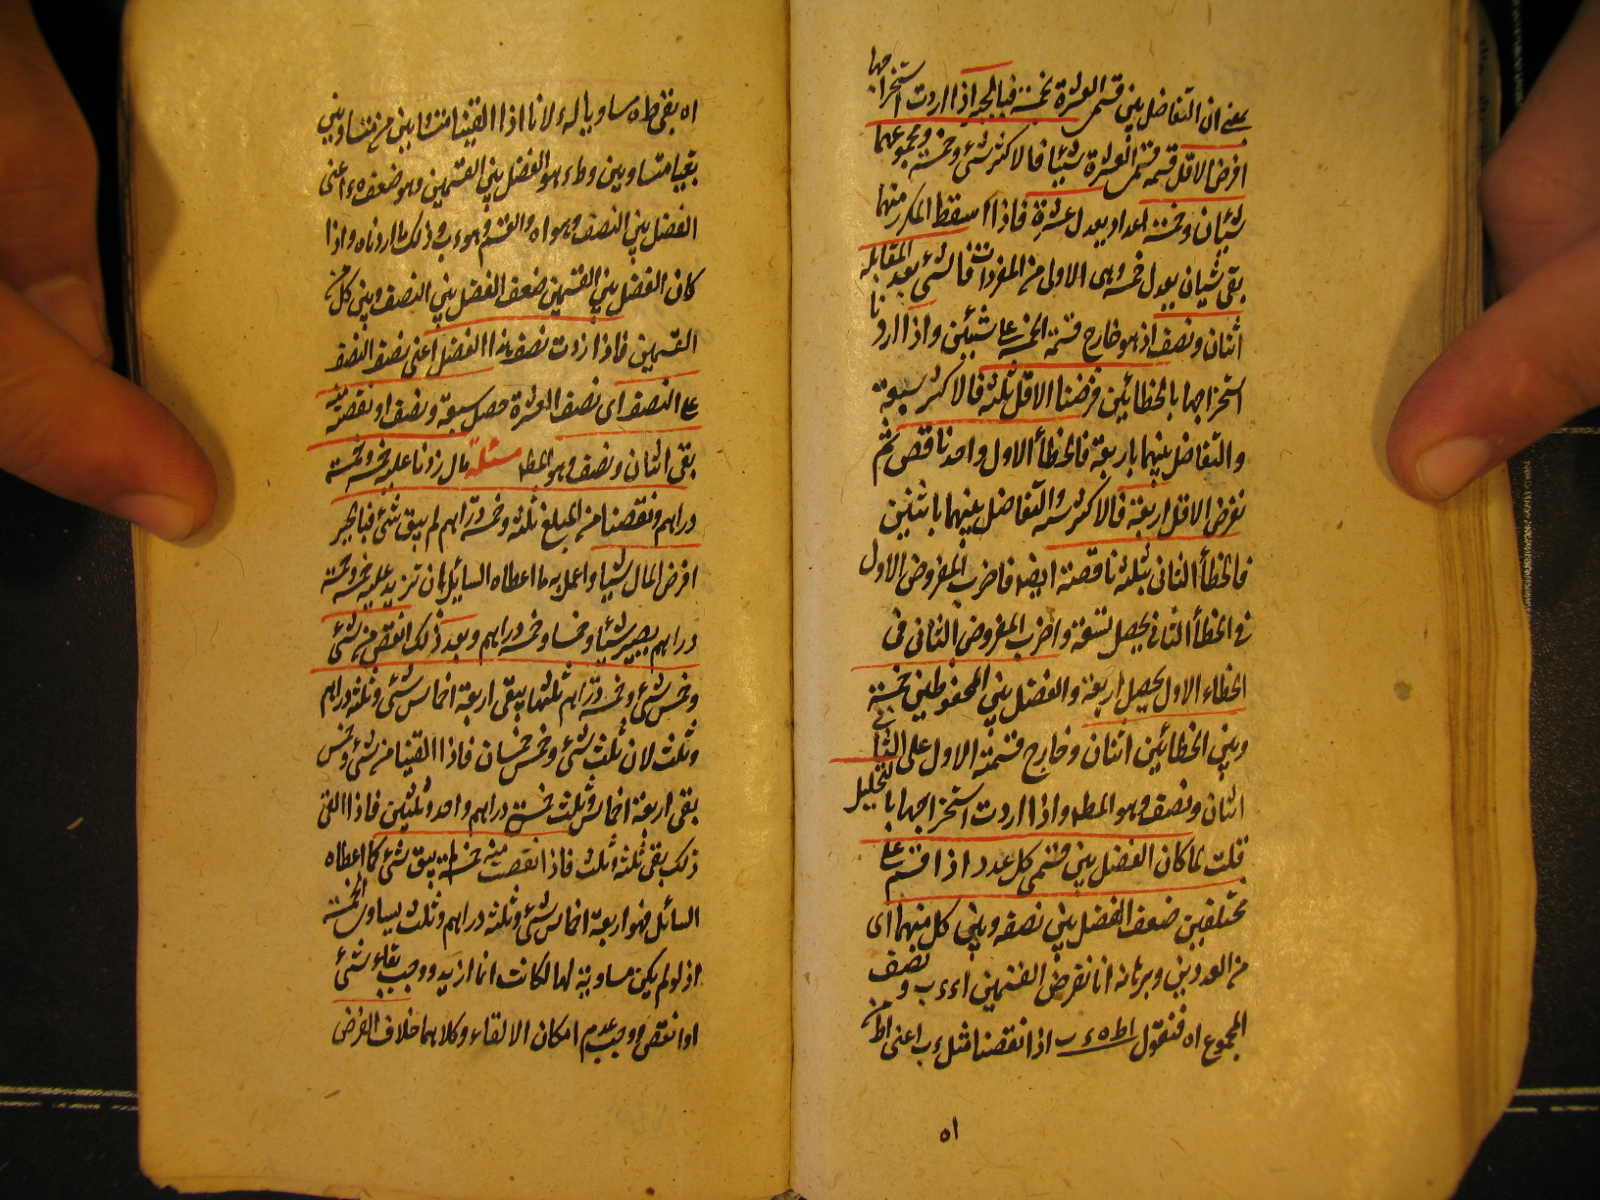 يعنى ان التفاضل بين قسمى العشرة بخمسة فبالجبر اذا اردت استخراجها
افرض الاقل قسمة قسمى العشرة شيئا فالاكثر شئ وخمسة ومجموعهما
شيئان وخمسة اعداد يعدل عشرة فاذا اسقط المكرر منهما
بقى شيئان يعدل خمسة وهى الاولى من المفردات فالشئ بعد المقابلة
اثنان ونصف اذ هو خارج قسمة الخمسة على شيئين واذا اردنا
استخراجها بالخطائين فرضنا الاقل ثلثة فالاكثر سبعة
والتفاضل بينهما باربعة فالخطأ الاول واحد ناقص ثم
نفرض الاقل اربعة فالاكثر ستة والتفاضل بينهما باثنين
فالخطأ الثانى بثلثة ناقصة ايضا فاضرب المفروض الاول
فى الخطأ الثانى يحصل تسعة واضرب المفروض الثانى فى
الخطاء الاول يحصل اربعة والفضل بين المحفوظين خمسة
وبين الخطائين اثنان وخارج قسمة الاول على الثانى
اثنان ونصف وهو المط واذا اردت استخراجها بالتحليل
قلت لما كان الفضل بين قسمى كل عدد اذا قسم على
مختلفين ضعف الفضل بين نصفه وبين كل منهما اى
من العددين وبرهانه انا نفرض القسمين اء ء ب ونصف
المجموع اه فنقول اط ه ء ب اذا نقصنا مثل ء ب اعنى اط من
اه
اه بقى طه مساويا له ء لانا اذا القينا متساويين من متساويين
بقيا متساويين وطء هو الفضل بين القسمين وهو ضعف ه ء اعنى
الفضل بين النصف وهو اه والقسم وهو ء ب وذلك ما اردناه واذا
كان الفضل بين القسمين ضعف الفضل بين النصف وبين كل من
القسمين فاذا زدت نصف هذا الفضل اعنى نصف النصف
على النصف اى نصف العشرة حصل سبعة ونصف او نقصته منه
بقى اثنان ونصف وهو المط مسئلة مال زدنا عليه خمسه وخمسة
دراهم ونقصنا من المبلغ ثلثه وخمسة دراهم لم يبق شئ فبالجبر
افرض المال شيئا واعمل به ما اعطاه السايل بان تزيد عليه خمسه وخمسة
دراهم يصير شيئا وخمسا وخمسة دراهم وبعد ذلك انقص من شئ
وخمس شئ وخمسة دراهم ثلثها يبقى اربعة اخماس شئ وثلثة دراهم
وثلث لان ثلث شئ وخمس خمسان فاذا القينا من شئ وخمس
بقى اربعة اخماس وثلث خمسة دراهم واحد وثلثين فاذا القى
ذلك بقى ثلثة وثلث فاذا نقصت منه خمسة لم يبق شئ كما اعطاه
السائل فهو اربعة اخماس شئ وثلثة دراهم وثلث يساوى الخمسة
اذ لو لم يكن مساوية لها لكانت اما ازيد ووجب بقاء شئ
او انقص ووجب عدم امكان الالقاء وكلاهما خلاف الفرض